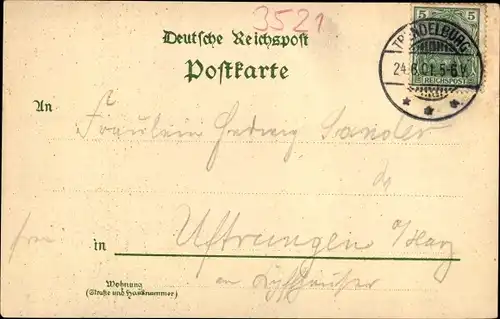 3521
Deutsche Reichspost
Postkarte
5 5
REICHSPOST
TRENDELBURG
24.6.01.5-6V.
An
Fräulein Hedwig Sander
in Uftrungen a/Harz
am Kyffhäuser
Wohnung
(Straße und Hausnummer)